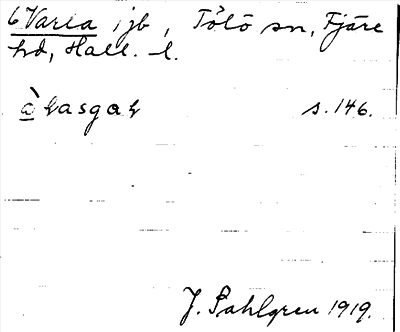 6 Varla jb, Tölö sn, Fjäre
hd, Hall. l.
àvasgav s. 146.
J. Sahlgren 1919.